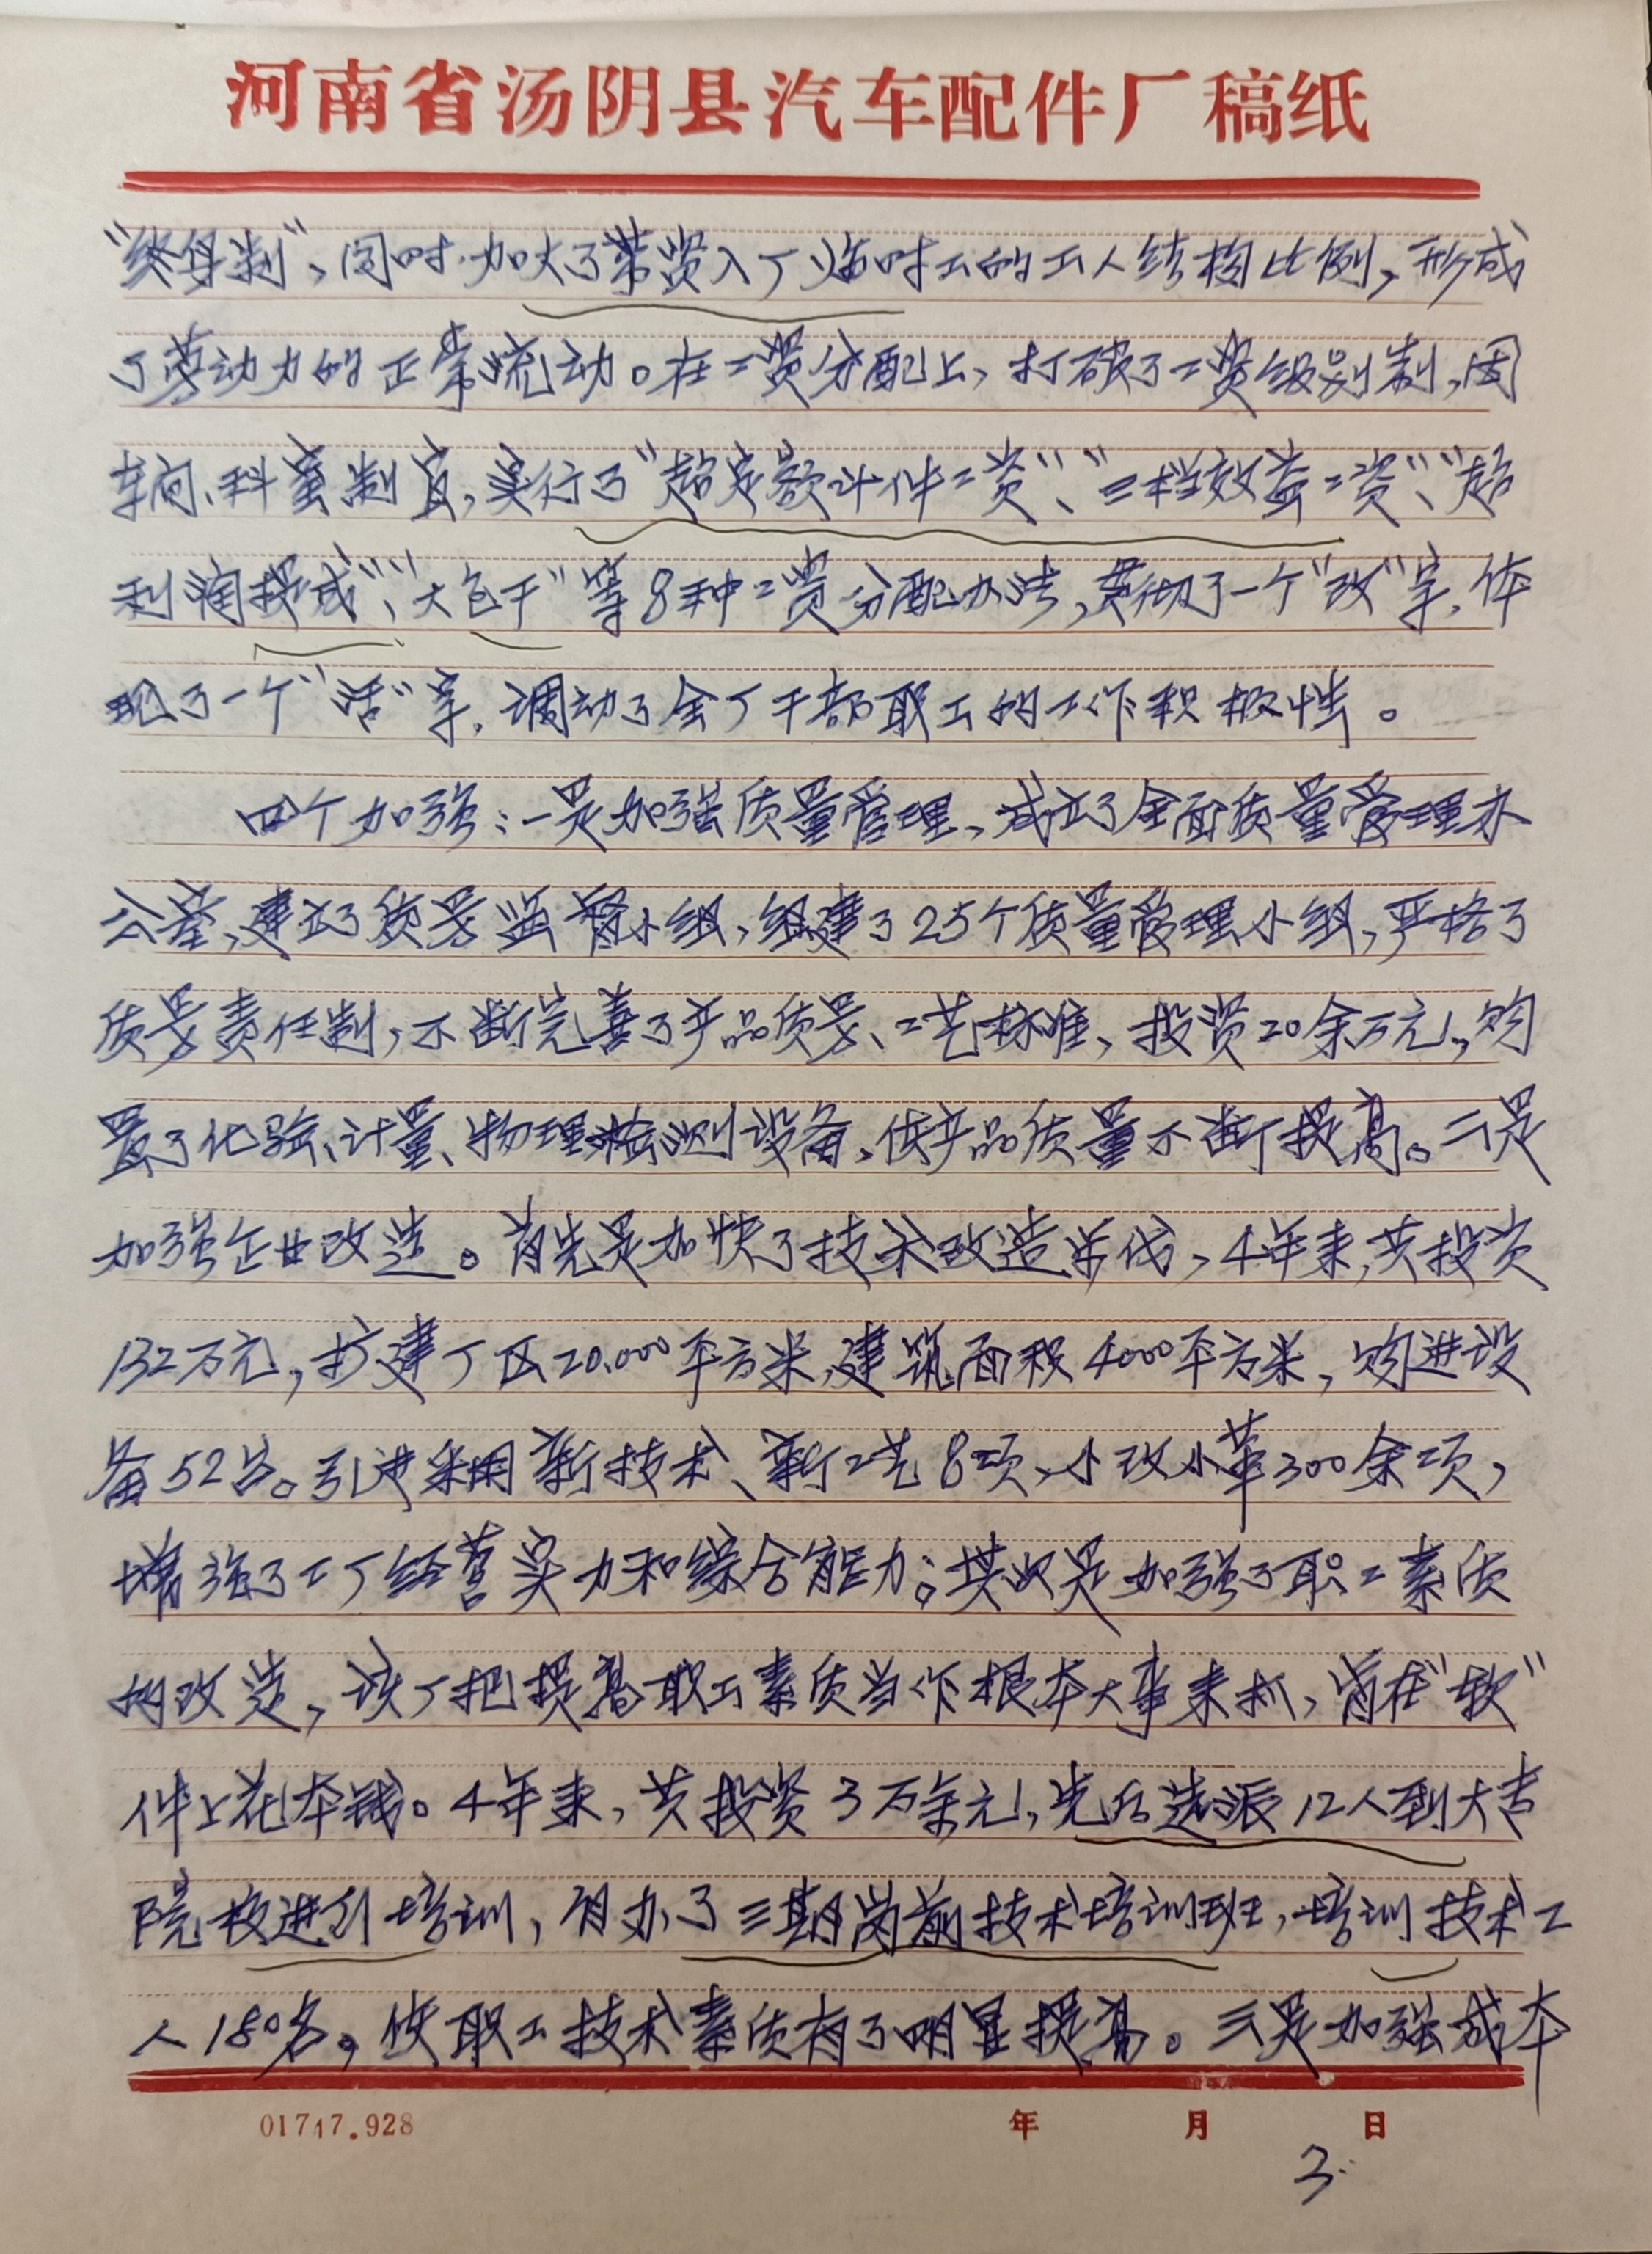 河南省汤阴县汽车配件厂稿纸
“终身制”、同时加大了带资入厂临时工的工人结构比例，形成
了劳动力的正常流动。在工资分配上、打破了工资级别制，因
车间、科室制宜，实行了“超定额计件工资”、“三档效益工资”、“超
利润提成”、“大包干”等8种工资分配办法，贯彻了一个“改”字，体
现了一个“活”字，调动了全厂干部职工的工作积极性。
四个加强：一是加强质量管理、成立了全面质量管理办
公室，建立了质量监督小组，组建了25个质量管理小组，严格了
质量责任制，不断完善了产品质量、工艺标准、投资20余万元，购
置了化验、计量、物理检测设备，使产品质量不断提高。二是
加强企业改造。首先是加快了技术改造步伐，4年来，共投资
132万元，扩建厂区20.000平方米，建筑面积4000平方米，购进设
备52台。引进采用新技术、新工艺8项、小改小革300余项，
增强了工厂经营实力和综合能力；其次是加强了职工素质
的改造，该厂把提高职工素质当作根本大事来抓，肯在“软”
件上花本钱。4年来，共投资3万余元，先后选派12人到大专
院校进行培训，自办了三期岗前技术培训班，培训技术工
人180名。使职工技术素质有了明显提高。三是加强成本
01717.928 年 月 日
3